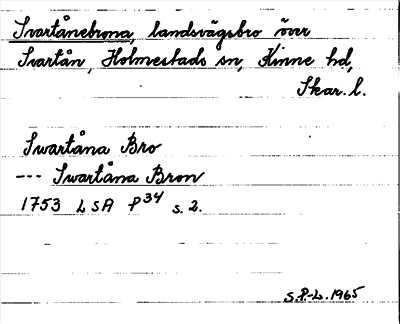 Svartånebrona, landsvägsbro över
Svartån, Holmestads sn, Kinne hd,
Skar. l.
Swartåna Bro
--- Swartåna Bron
1753 LSA P34 s. 2.
S.P.-L. 1965